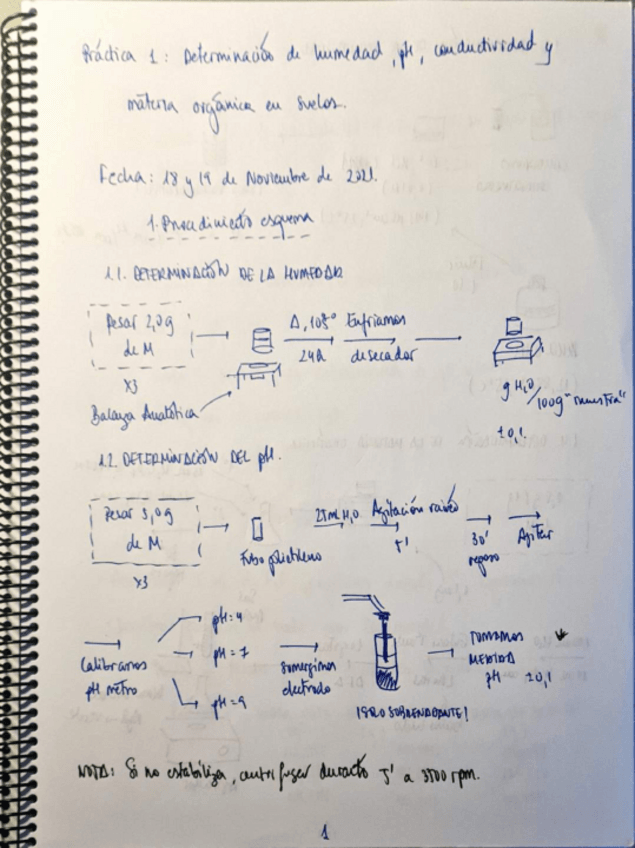 Práctica 1: Determinación de humedad, pH, conductividad y
materia orgánica en suelos.
Fecha: 18 y 19 de Noviembre de 2021.
1. Procedimiento esquema
1.1. DETERMINACIÓN DE LA HUMEDAD
Pesar 2,0g
de M
x3
Balaza Analítica
Δ, 105°
24h
Enfriamos
desecador
g H2O
/100g "muestra"
±0,1
1.2. DETERMINACIÓN DEL pH.
Pesar 5,0g
de M
x3
Tubo polietileno
25mL H2O
Agitación
30'
reposo
Agitar
Calibramos
pH metro
pH=4
pH=7
pH=9
sumergimos
electrodo
¡SOLO SOBRENADANTE!
TOMAMOS
MEDIDA
pH ±0,1
NOTA: Si no estabiliza, centrifugar durante 5' a 3500 rpm.
1